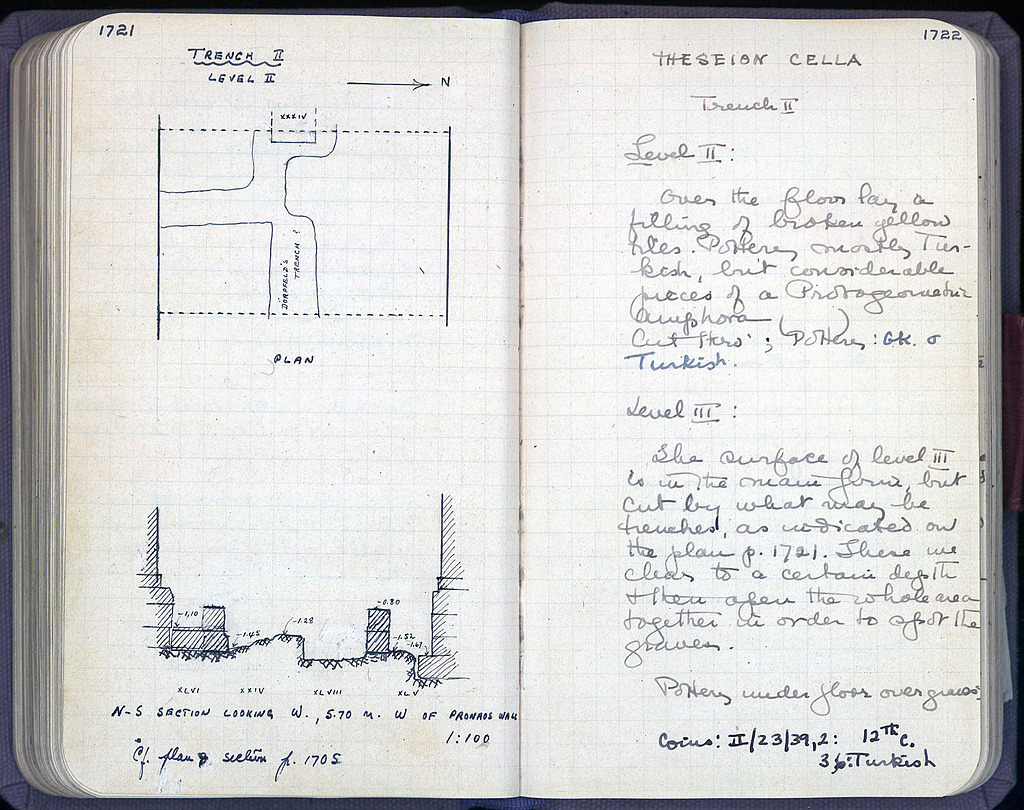 1721
TRENCH II
LEVEL II
N
XXXIV
DÖRPFELD'S
TRENCH ?
PLAN
-1.10
-1.45
-1.28
-0.80
-1.52
-1.67
XLVI
XXIV
XLVIII
XLV
N-S SECTION LOOKING W., 5.70 M. W OF PRONAOS WALL
1:100
Cf. plan & section p. 1705
1722
THESEION CELLA
Trench II
Level II:
Over the floor lay a
filling of broken yellow
tiles. Pottery mostly Tur-
kish, but considerable
pieces of a Protogeometric
Amphora ( )
Cut ; Pottery: GK. &
Turkish.
Level III:
The surface of level III
is in the main firm, but
cut by what may be
trenches, as indicated on
the plan p. 1721. These we
clear to a certain depth
& then open the whole area
together in order to spot the
graves.
Pottery under floor over graves:
Coins: II/23/39, 2: 12th c.
3 : Turkish